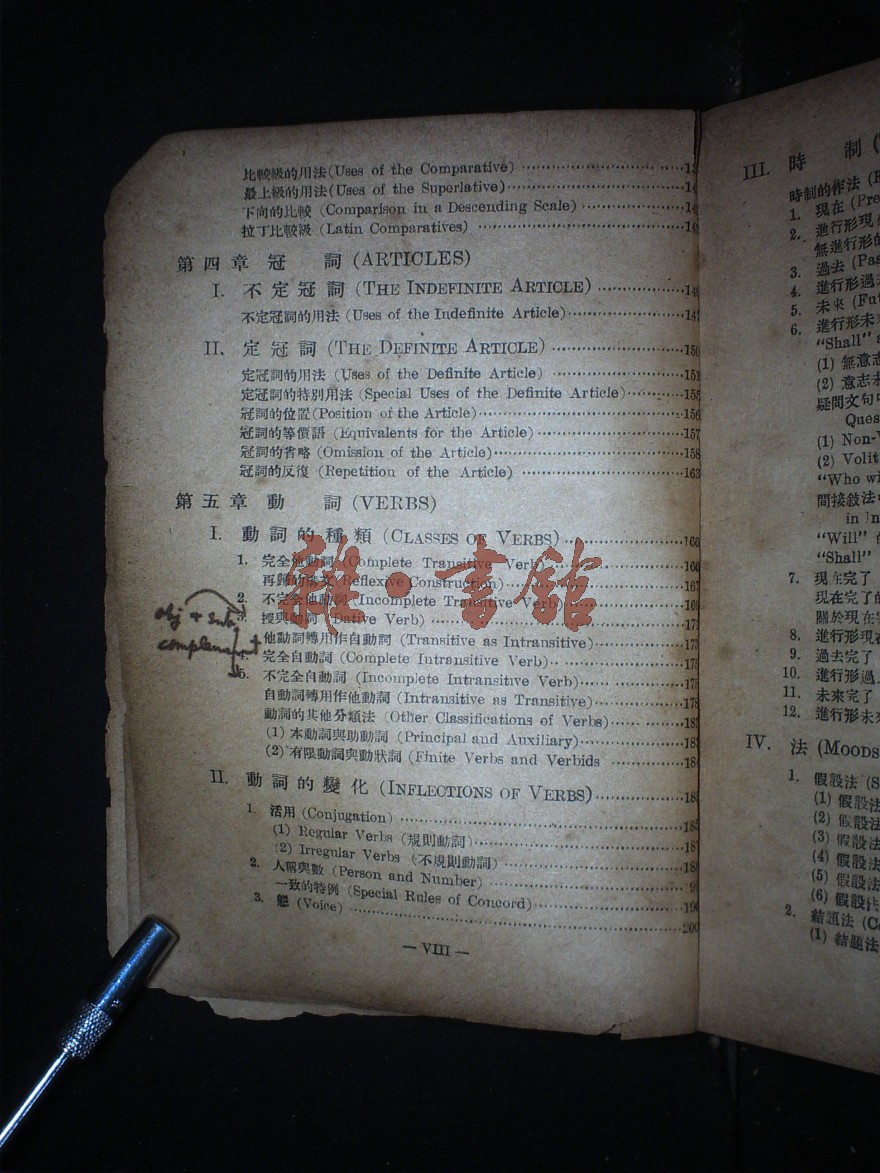 比較級的用法(Uses of the Comparative)
最上級的用法(Uses of the Superlative)
下向的比較 (Comparison in a Descending Scale)
拉丁比較級 (Latin Comparatives)
第四章 冠 詞 (ARTICLES)
I. 不定冠詞 (THE INDEFINITE ARTICLE)
不定冠詞的用法 (Uses of the Indefinite Article)
II. 定冠詞 (THE DEFINITE ARTICLE) 150
定冠詞的用法 (Uses of the Definite Article) 151
定冠詞的特別用法 (Special Uses of the Definite Article) 155
冠詞的位置(Position of the Article) 156
冠詞的等價語 (Equivalents for the Article) 157
冠詞的省略 (Omission of the Article) 158
冠詞的反復 (Repetition of the Article) 163
第五章 動 詞 (VERBS)
I. 動詞的種類 (CLASSES OF VERBS) 166
1. 完全他動詞 (Complete Transitive Verb) 166
再歸的構文 (Reflexive Construction) 167
2. 不完全他動詞 (Incomplete Transitive Verb) 169
3. 授與動詞 (Dative Verb)
他動詞轉用作自動詞 (Transitive as Intransitive) 173
4. 完全自動詞 (Complete Intransitive Verb) 175
5. 不完全自動詞 (Incomplete Intransitive Verb) 175
自動詞轉用作他動詞 (Intransitive as Transitive) 178
動詞的其他分類法 (Other Classifications of Verbs)
(1) 本動詞與助動詞 (Principal and Auxiliary)
(2) 有限動詞與動狀詞 (Finite Verbs and Verbids
II. 動詞的變化 (INFLECTIONS OF VERBS)
1. 活用 (Conjugation)
(1) Regular Verbs (規則動詞)
(2) Irregular Verbs (不規則動詞)
2. 人稱與數 (Person and Number)
一致的特例 (Special Rules of Concord)
3. 態 (Voice) 200
— VIII —
obj +
雜·書館
III. 時 制
時制的作法
1. 現在 (Pre
2. 進行形現
無進行形的
3. 過去 (Pas
4. 進行形過
5. 未來 (Fut
6. 進行形未
"Shall" a
(1) 無意志
(2) 意志未
疑問文句中
Ques
(1) Non-V
(2) Volit
"Who wi
間接敍法
in In
"Will" 的
"Shall"
7. 現在完了
現在完了的
關於現在完
8. 進行形現在
9. 過去完了
10. 進行形過
11. 未來完了
12. 進行形未
IV. 法 (MOODS
1. 假設法 (S
(1) 假設法
(2) 假設法
(3) 假設法
(4) 假設法
(5) 假設法
(6) 假設法
2. 結題法 (Co
(1) 結題法